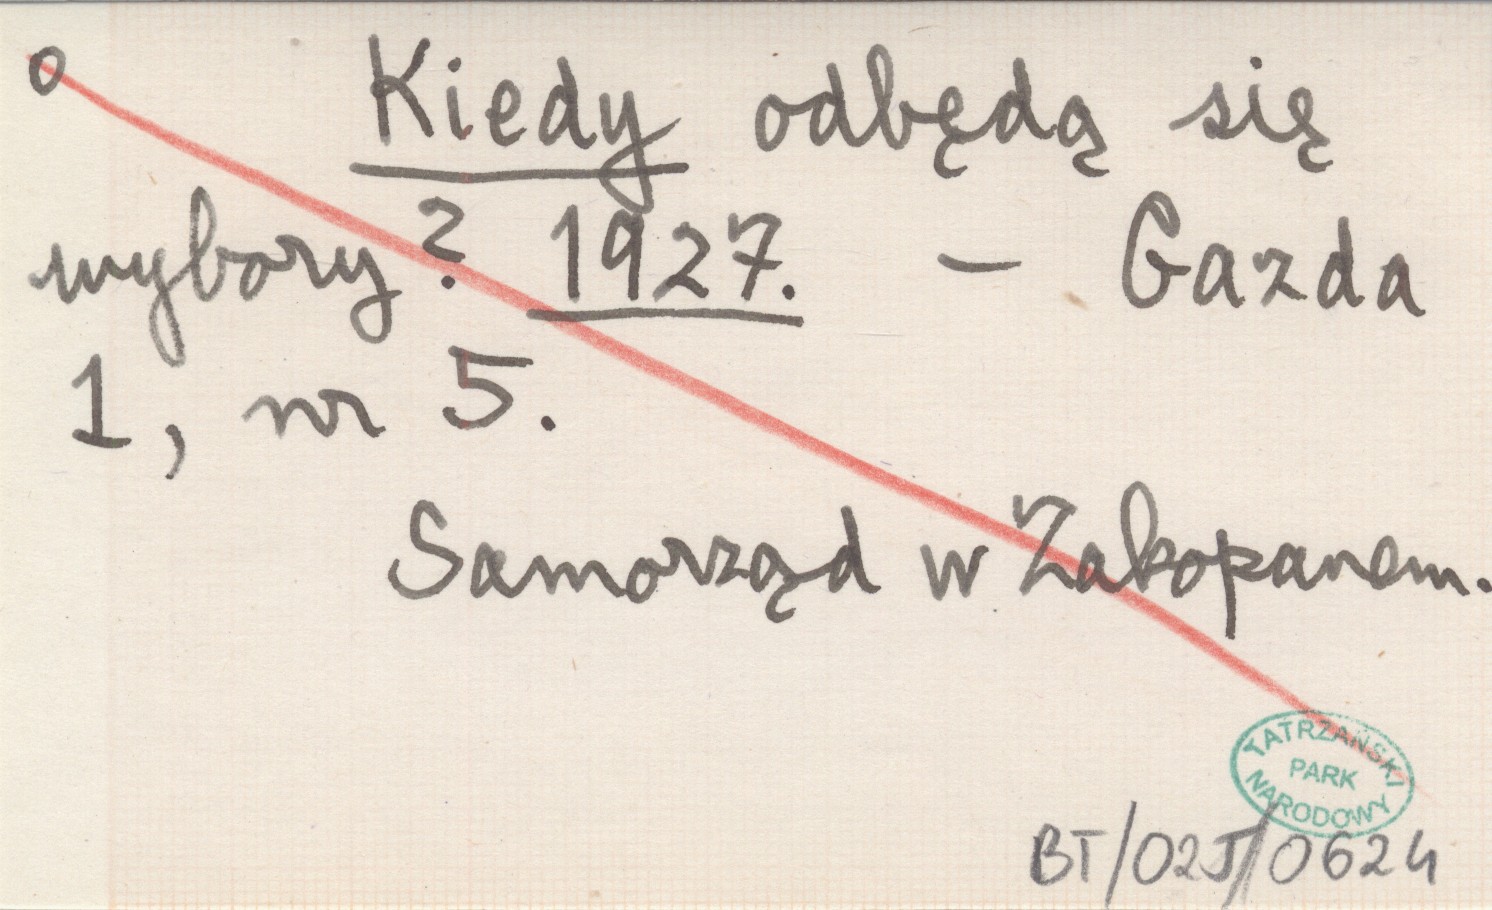 o Kiedy odbędą się
wybory? 1927. – Gazda
1, nr 5.
Samorząd w Zakopanem.
TATRZAŃSKI
PARK
NARODOWY
BT/02J/0624